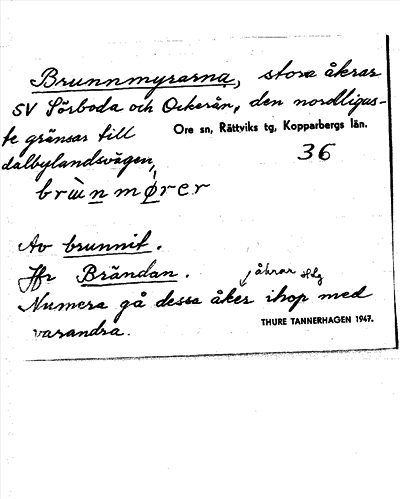 Brunnmyrarna, stora åkrar
SV Sörboda och Ockerån, den nordligas-
te gränsar till
Ore sn, Rättviks tg, Kopparbergs län.
dalbylandsvägen,
36
brùnmǿrer
Av brunnit.
Jfr Brändan.
åkrar
Numera gå dessa åker ihop med
varandra.
THURE TANNERHAGEN 1947.